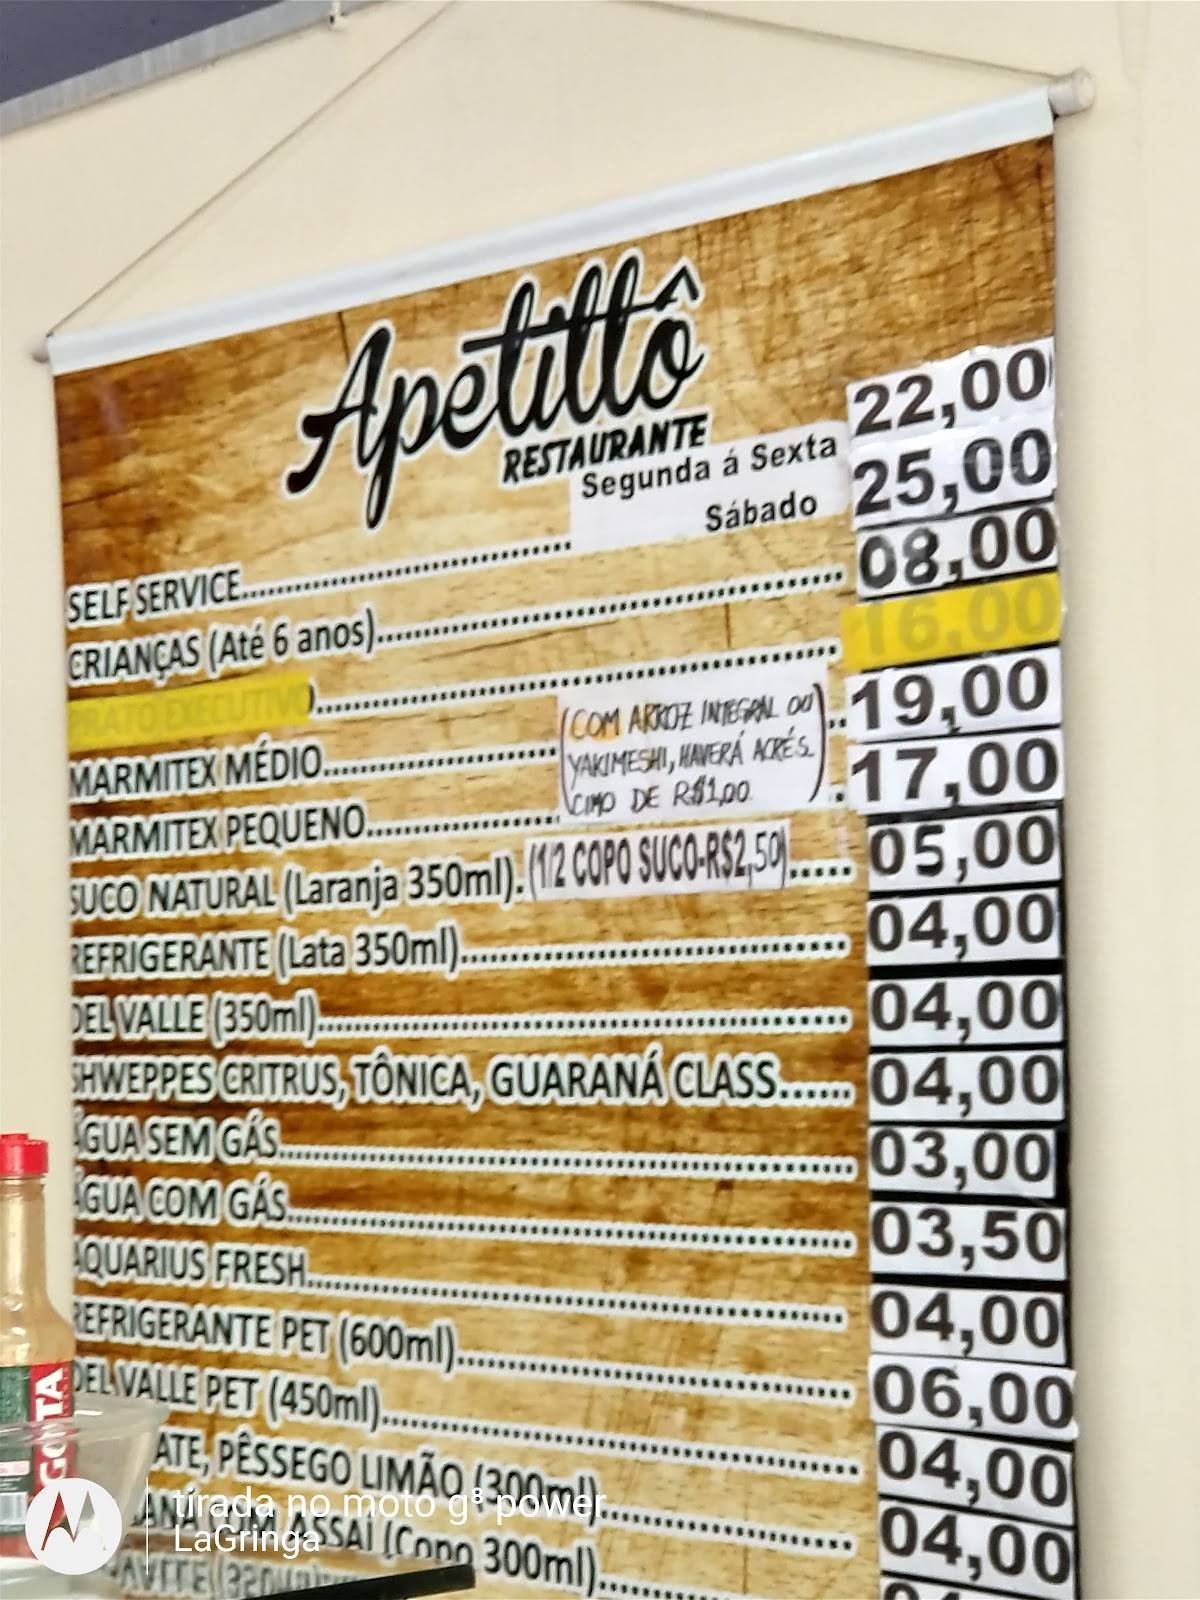 Apetittô
RESTAURANTE
Segunda á Sexta 22,00
Sábado 25,00
SELF SERVICE
CRIANÇAS (Até 6 anos) 08,00
PRATO EXECUTIVO) 16,00
MARMITEX MÉDIO 19,00
MARMITEX PEQUENO 17,00
(COM ARROZ INTEGRAL OU
YAKIMESHI, HAVERÁ ACRÉS.
CIMO DE R$1,00)
SUCO NATURAL (Laranja 350ml). (1/2 COPO SUCO-R$2,50) 05,00
REFRIGERANTE (Lata 350ml) 04,00
DEL VALLE (350ml) 04,00
SHWEPPES CRITRUS, TÔNICA, GUARANÁ CLASS 04,00
ÁGUA SEM GÁS 03,00
ÁGUA COM GÁS 03,50
AQUARIUS FRESH 04,00
REFRIGERANTE PET (600ml) 06,00
DEL VALLE PET (450ml) 04,00
ATE, PÊSSEGO LIMÃO (300ml) 04,00
ASSAÍ (Copo 300ml)
GOTA
tirada no moto g⁸ power
LaGringa